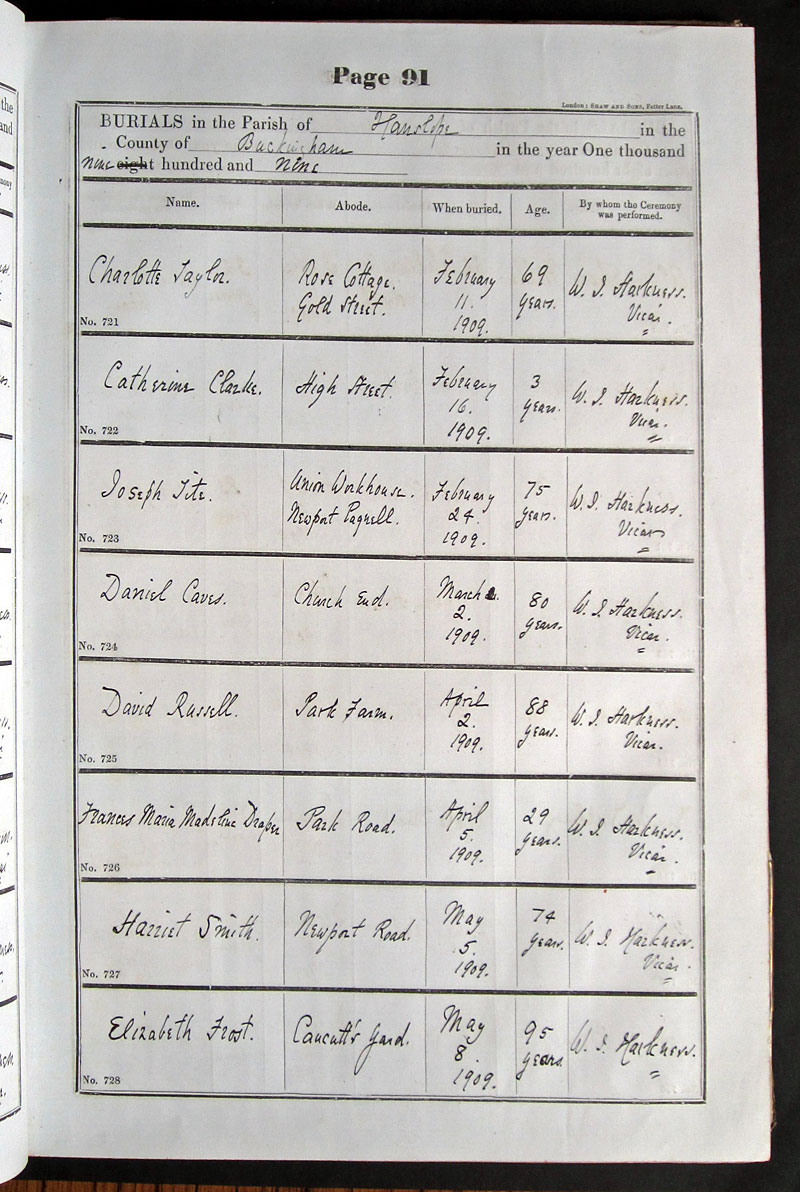 Page 91
London: SHAW AND SONS, Fetter Lane.
BURIALS in the Parish of Hanslope in the
County of Buckingham in the year One thousand
nine eight hundred and nine
Name. Abode. When buried. Age. By whom the Ceremony was performed.
Charlotte Taylor.
No. 721
Rose Cottage.
Gold Street.
February
11.
1909.
69
years.
W. J. Harkness.
Vicar.
Catherine Clarke.
No. 722
High Street.
February
16.
1909.
3
years.
W. J. Harkness.
Vicar.
Joseph Tite.
No. 723
Union Workhouse.
Newport Pagnell.
February
24.
1909.
75
years.
W. J. Harkness.
Vicar
Daniel Caves.
No. 724
Church End.
March
2.
1909.
80
years.
W. J. Harkness.
Vicar.
David Russell.
No. 725
Park Farm.
April
2.
1909.
88
years.
W. J. Harkness.
Vicar.
Frances Maria Madeline Draper
No. 726
Park Road.
April
5.
1909.
29
years.
W. J. Harkness.
Vicar.
Harriet Smith.
No. 727
Newport Road.
May
5.
1909.
74
years.
W. J. Harkness.
Vicar.
Elizabeth Frost.
No. 728
Caucutt's Yard.
May
8.
1909.
95
years.
W. J. Harkness.